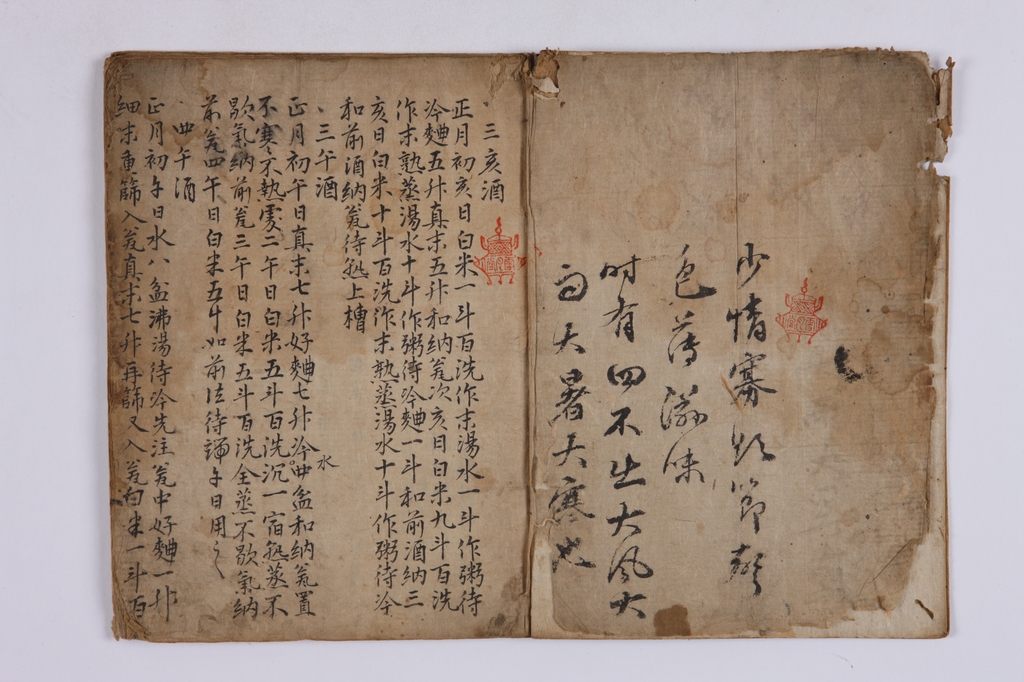 少情寡欲節聲
色薄滋味
时有四不出大风大
雨大暑大寒也
三亥酒
正月初亥日白米一斗百洗作末湯水一斗作粥待
冷麯五升真末五升和納瓮次亥日白米九斗百洗
作末熟蒸湯水十斗作粥待冷麯一斗和前酒納三
亥日白米十斗百洗作末熟蒸湯水十斗作粥待冷
和前酒納瓮待熟上槽
三午酒
正月初午日真末七升好麯七升冷水四盆和納瓮置
不寒不熱處二午日白米五斗百洗沉一宿熟蒸不
歇氣納前瓮三午日白米五斗百洗全蒸不歇氣納
前瓮四午日白米五斗如前法待端午日用之
四午酒
正月初午日水八盆沸湯待冷先注瓮中好麯一升
細末重篩入瓮真末七升再篩又入瓮白米一斗百